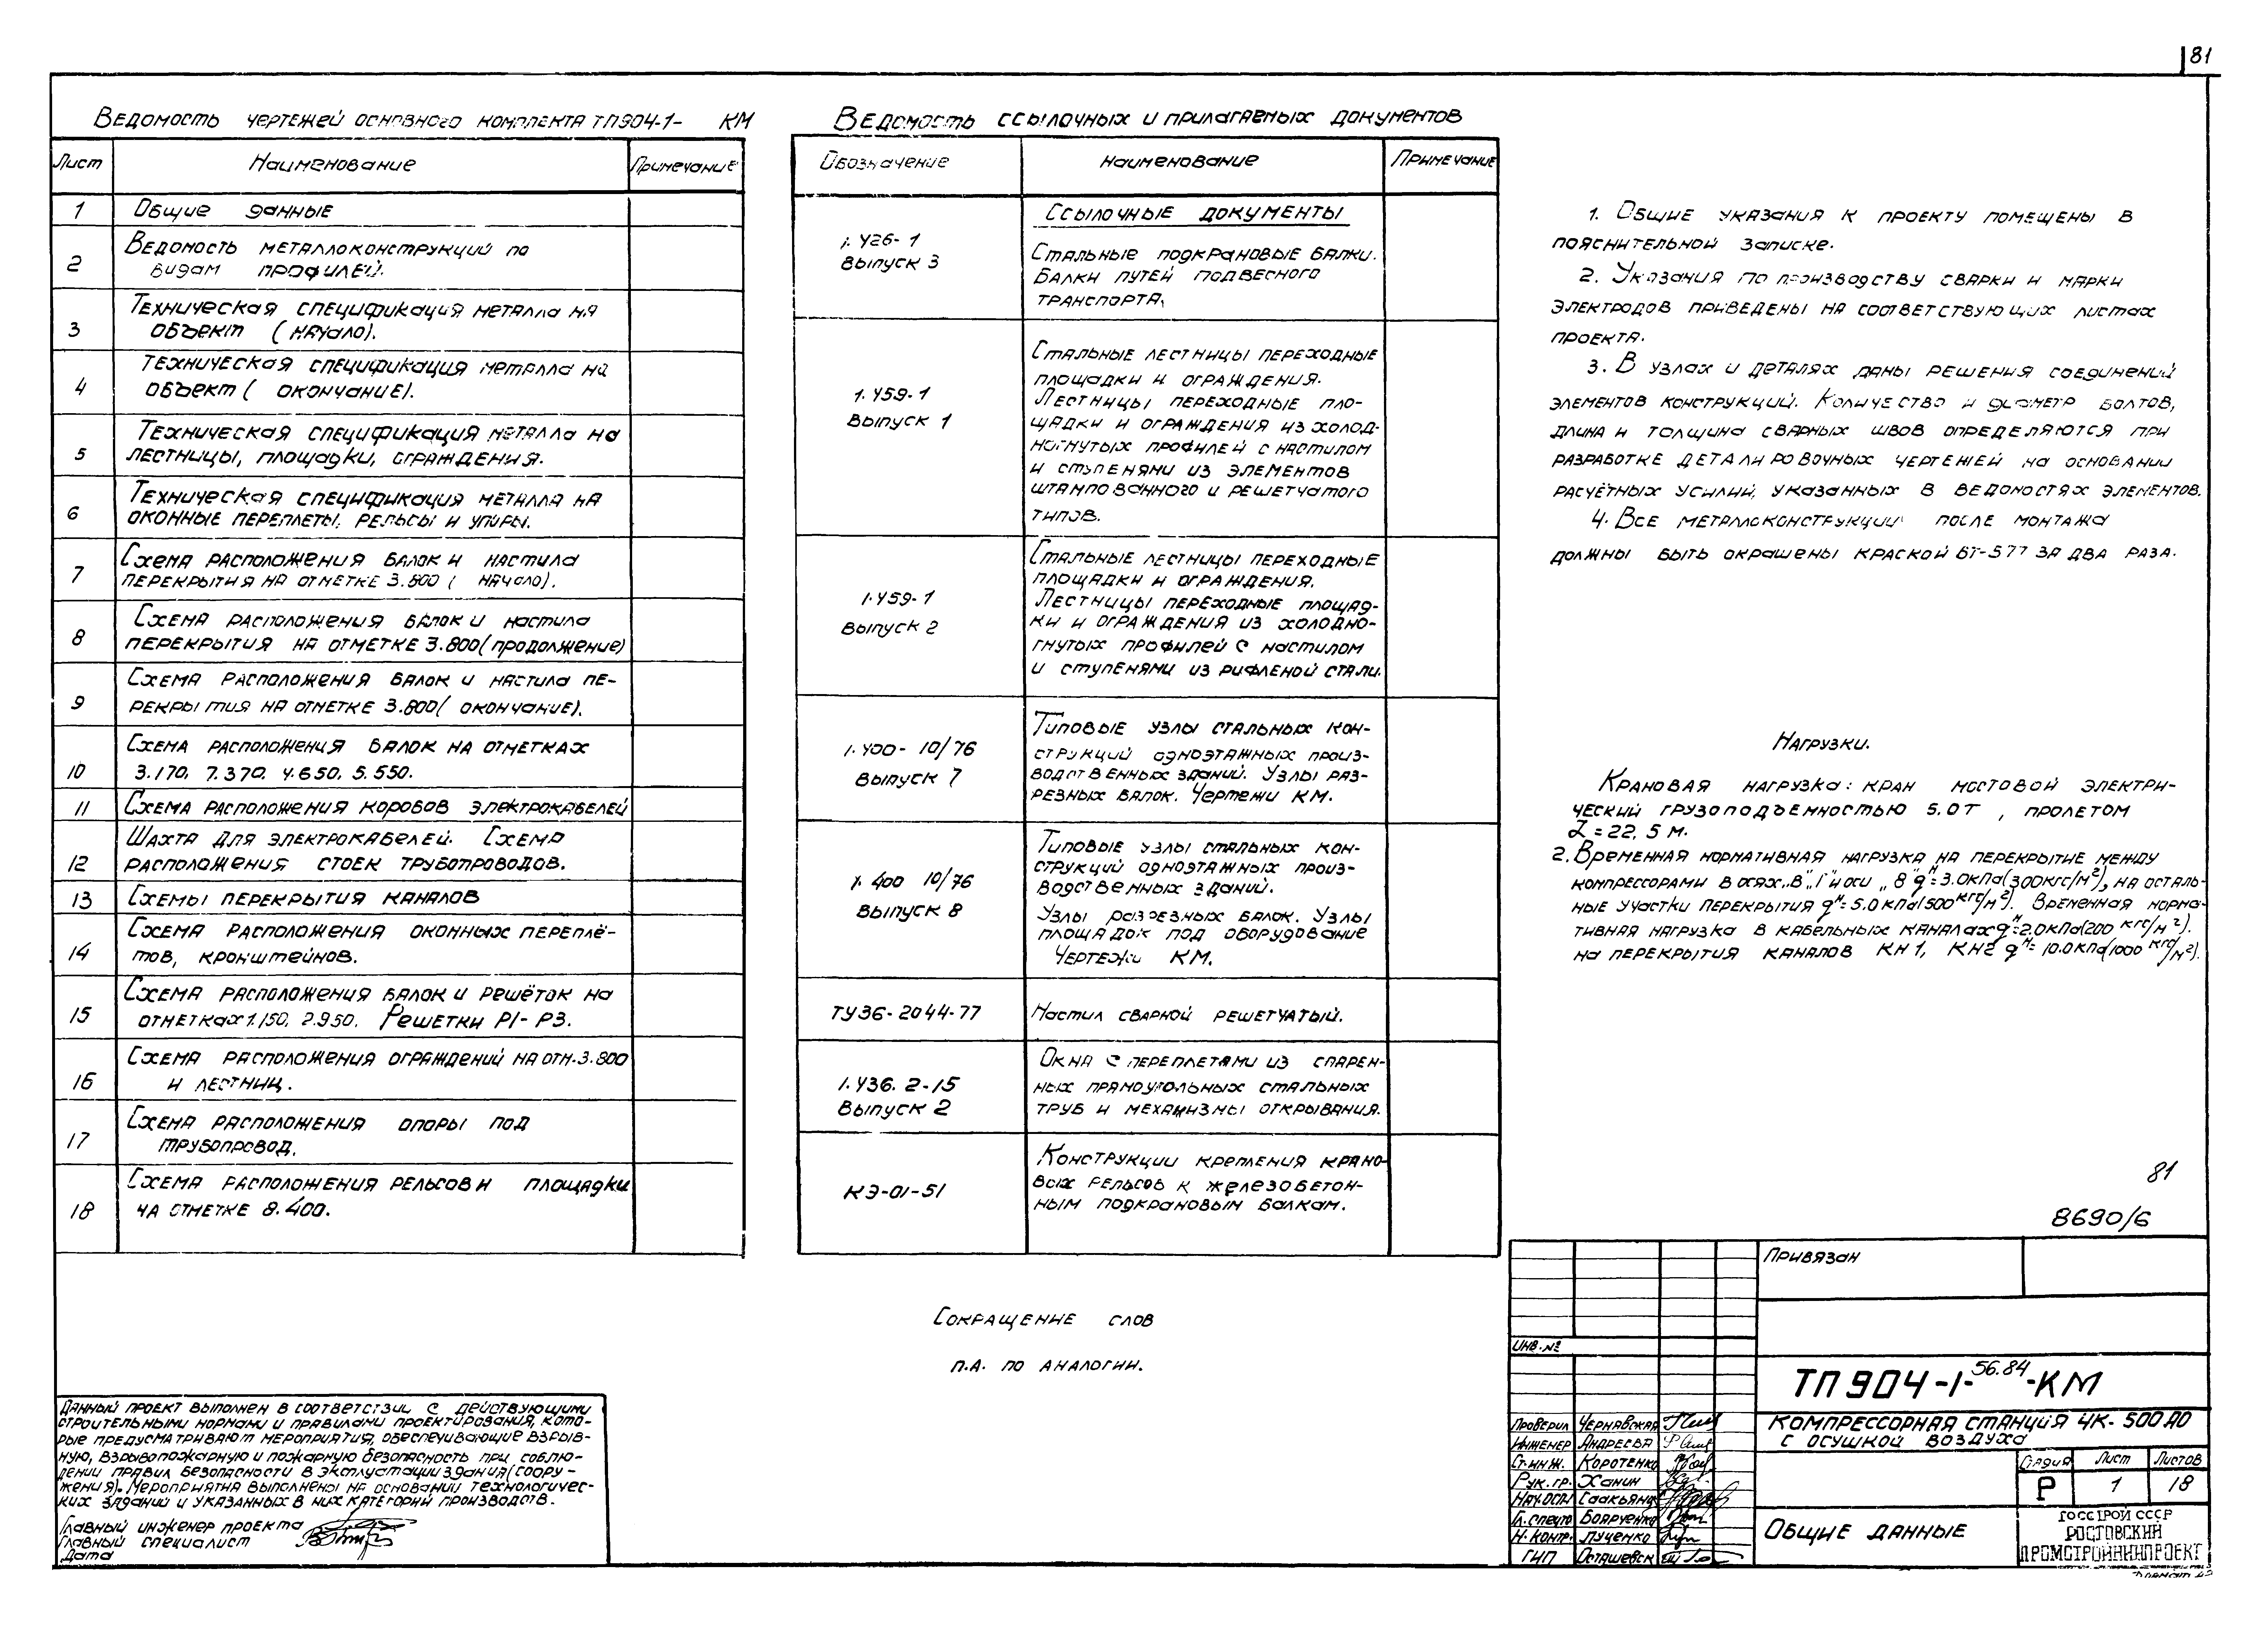 81
Ведомость чертежей основного комплекта ТП904-1- КМ
Лист Наименование Примечание
1 Общие данные
2 Ведомость металлоконструкций по
видам профилей.
3 Техническая спецификация металла на
объект (начало).
4 Техническая спецификация металла на
объект (окончание).
5 Техническая спецификация металла на
лестницы, площадки, ограждения.
6 Техническая спецификация металла на
оконные переплеты, рельсы и упоры.
7 Схема расположения балок и настила
перекрытия на отметке 3.800 (начало).
8 Схема расположения балок и настила
перекрытия на отметке 3.800 (продолжение)
9 Схема расположения балок и настила пе-
рекрытия на отметке 3.800 (окончание).
10 Схема расположения балок на отметках
3.170, 7.370, 4.650, 5.550.
11 Схема расположения коробов электрокабелей
12 Шахта для электрокабелей. Схема
расположения стоек трубопроводов.
13 Схемы перекрытия каналов
14 Схема расположения оконных переплё-
тов, кронштейнов.
15 Схема расположения балок и решёток на
отметках 1.150, 2.950. Решетки Р1-Р3.
16 Схема расположения ограждений на отм. 3.800
и лестниц.
17 Схема расположения опоры под
трубопровод.
18 Схема расположения рельсов и площадки
на отметке 8.400.
Ведомость ссылочных и прилагаемых документов
Обозначение Наименование Примечание
Ссылочные документы
1.426-1
Выпуск 3
Стальные подкрановые балки.
Балки путей подвесного
транспорта.
1.459-1
Выпуск 1
Стальные лестницы переходные
площадки и ограждения.
Лестницы переходные пло-
щадки и ограждения из холод-
ногнутых профилей с настилом
и ступенями из элементов
штампованного и решетчатого
типов.
1.459-1
Выпуск 2
Стальные лестницы переходные
площадки и ограждения.
Лестницы переходные площад-
ки и ограждения из холодно-
гнутых профилей с настилом
и ступенями из рифленой стали.
1.400-10/76
Выпуск 7
Типовые узлы стальных кон-
струкций одноэтажных произ-
водственных зданий. Узлы раз-
резных балок. Чертежи КМ.
1.400 10/76
Выпуск 8
Типовые узлы стальных кон-
струкций одноэтажных произ-
водственных зданий.
Узлы разрезных балок. Узлы
площадок под оборудование
Чертежи КМ.
ТУ36-2044-77 Настил сварной решетчатый.
1.436.2-15
Выпуск 2
Окна с переплетами из спарен-
ных прямоугольных стальных
труб и механизмы открывания.
КЭ-01-51
Конструкции крепления крано-
вых рельсов к железобетон-
ным подкрановым балкам.
Сокращение слов
п.а. по аналогии.
1. Общие указания к проекту помещены в
пояснительной записке.
2. Указания по производству сварки и марки
электродов приведены на соответствующих листах
проекта.
3. В узлах и деталях даны решения соединений
элементов конструкций. Количество и диаметр болтов,
длина и толщина сварных швов определяются при
разработке деталировочных чертежей на основании
расчётных усилий, указанных в ведомостях элементов.
4. Все металлоконструкции после монтажа
должны быть окрашены краской БТ-577 за два раза.
Нагрузки.
Крановая нагрузка: кран мостовой электри-
ческий грузоподъемностью 5.0т, пролетом
L=22,5 м.
2. Временная нормативная нагрузка на перекрытие между
компрессорами в осях „В", „Г" и оси „8" qн=3.0кПа(300кгс/м²), на осталь-
ные участки перекрытия qн=5.0кПа(500кгс/м²). Временная норма-
тивная нагрузка в кабельных каналах qн=2.0кПа(200кгс/м²).
на перекрытия каналов КН1, КН2 qн=10.0кПа(1000кгс/м²).
81
8690/6
Данный проект выполнен в соответствии с действующими
строительными нормами и правилами проектирования, кото-
рые предусматривают мероприятия, обеспечивающие взрыв-
ную, взрывопожарную и пожарную безопасность при соблю-
дении правил безопасности в эксплуатации здания (соору-
жения). Мероприятия выполнены на основании технологичес-
ких заданий и указанных в них категорий производств.
Главный инженер проекта
Главный специалист
Дата
Привязан
инв. №
ТП904-1-56.84-КМ
Компрессорная станция 4К-500АО
с осушкой воздуха
Проверил Чернявская
Инженер Андреева
Ст. инж. Коротенко
Рук. гр. Ханин
Нач. осп.
Гл. спец. Боярченко
Н. контр. Луценко
ГИП
Стадия Лист Листов
Р 1 18
Общие данные
ГОССТРОЙ СССР
РОСТОВСКИЙ
ПРОМСТРОЙНИИПРОЕКТ